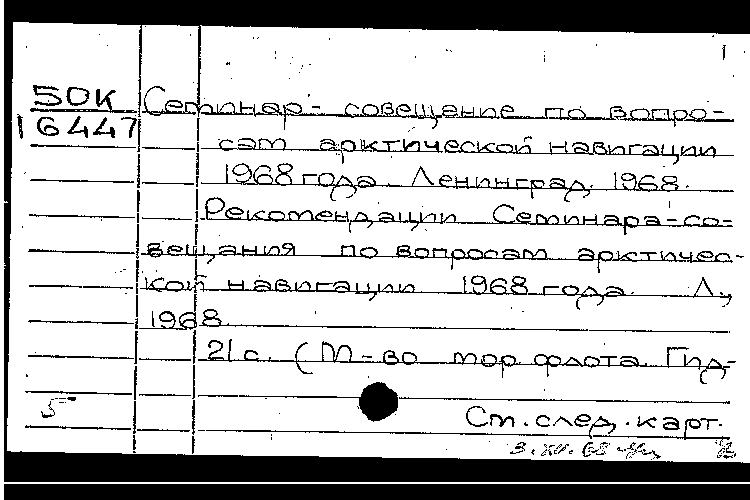 50К
16447
Семинар - совещание по вопро-
сам арктической навигации
1968 года. Ленинград, 1968.
Рекомендации Семинара-со-
вещания по вопросам арктичес-
кой навигации 1968 года. Л.,
1968.
21 с. (М-во мор. флота. Гид-
5
См. след. карт.
3.XII.68